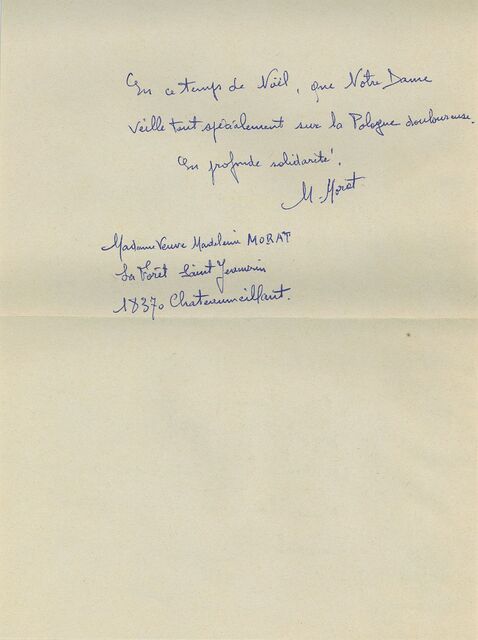 En ce temps de Noël, que Notre Dame
veille tout spécialement sur la Pologne douloureuse.
En profonde solidarité.
M. Morat
Madame Veuve Madeleine MORAT
La Forêt Saint Jeanvrin
18370 Chateaumeillant.